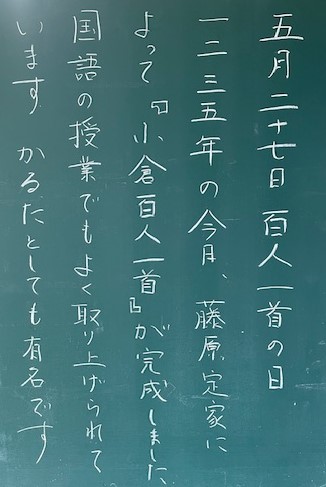 五月二十七日 百人一首の日
一二三五年の今日、藤原定家に
よって『小倉百人一首』が完成しました
国語の授業でもよく取り上げられて
います かるたとしても有名です